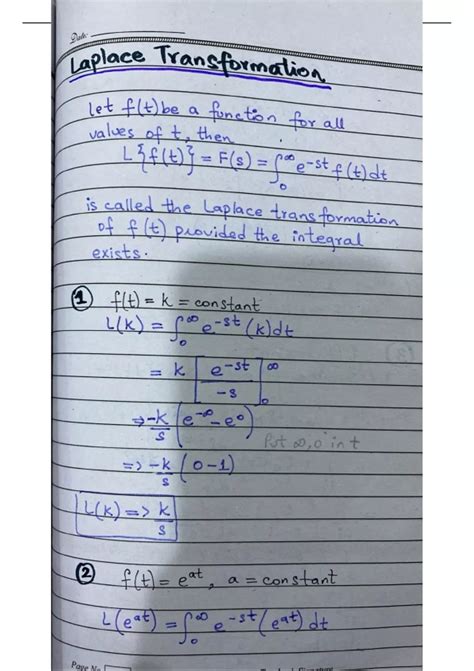 Date:
Laplace Transformation
Let f(t) be a function for all
values of t, then
L{f(t)} = F(s) = ∫₀^∞ e^-st f(t) dt
is called the Laplace transformation
of f(t) provided the integral
exists.
① f(t) = k = constant
L(k) = ∫₀^∞ e^-st (k) dt
= k [e^-st / -s]₀^∞
⇒ -k/s (e^-∞ - e^0)
Put ∞, 0 in t
=> -k/s (0-1)
L(k) => k/s
② f(t) = e^at, a = constant
L(e^at) = ∫₀^∞ e^-st (e^at) dt
Page No